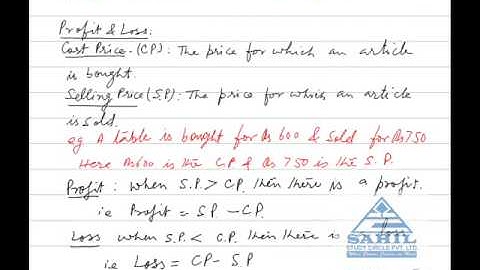 Profit & Loss:
Cost Price - (CP) : The price for which an article
is bought.
Selling Price (S.P) : The price for which an article
is sold.
eg A table is bought for Rs 600 & sold for Rs 750
Here Rs 600 is the CP & Rs 750 is the S.P.
Profit : when S.P. > C.P. then there is a profit.
ie Profit = S.P - C.P.
Loss when S.P. < C.P. then there is loss
ie Loss = CP - S.P
SAHIL
STUDY CIRCLE PVT. LTD